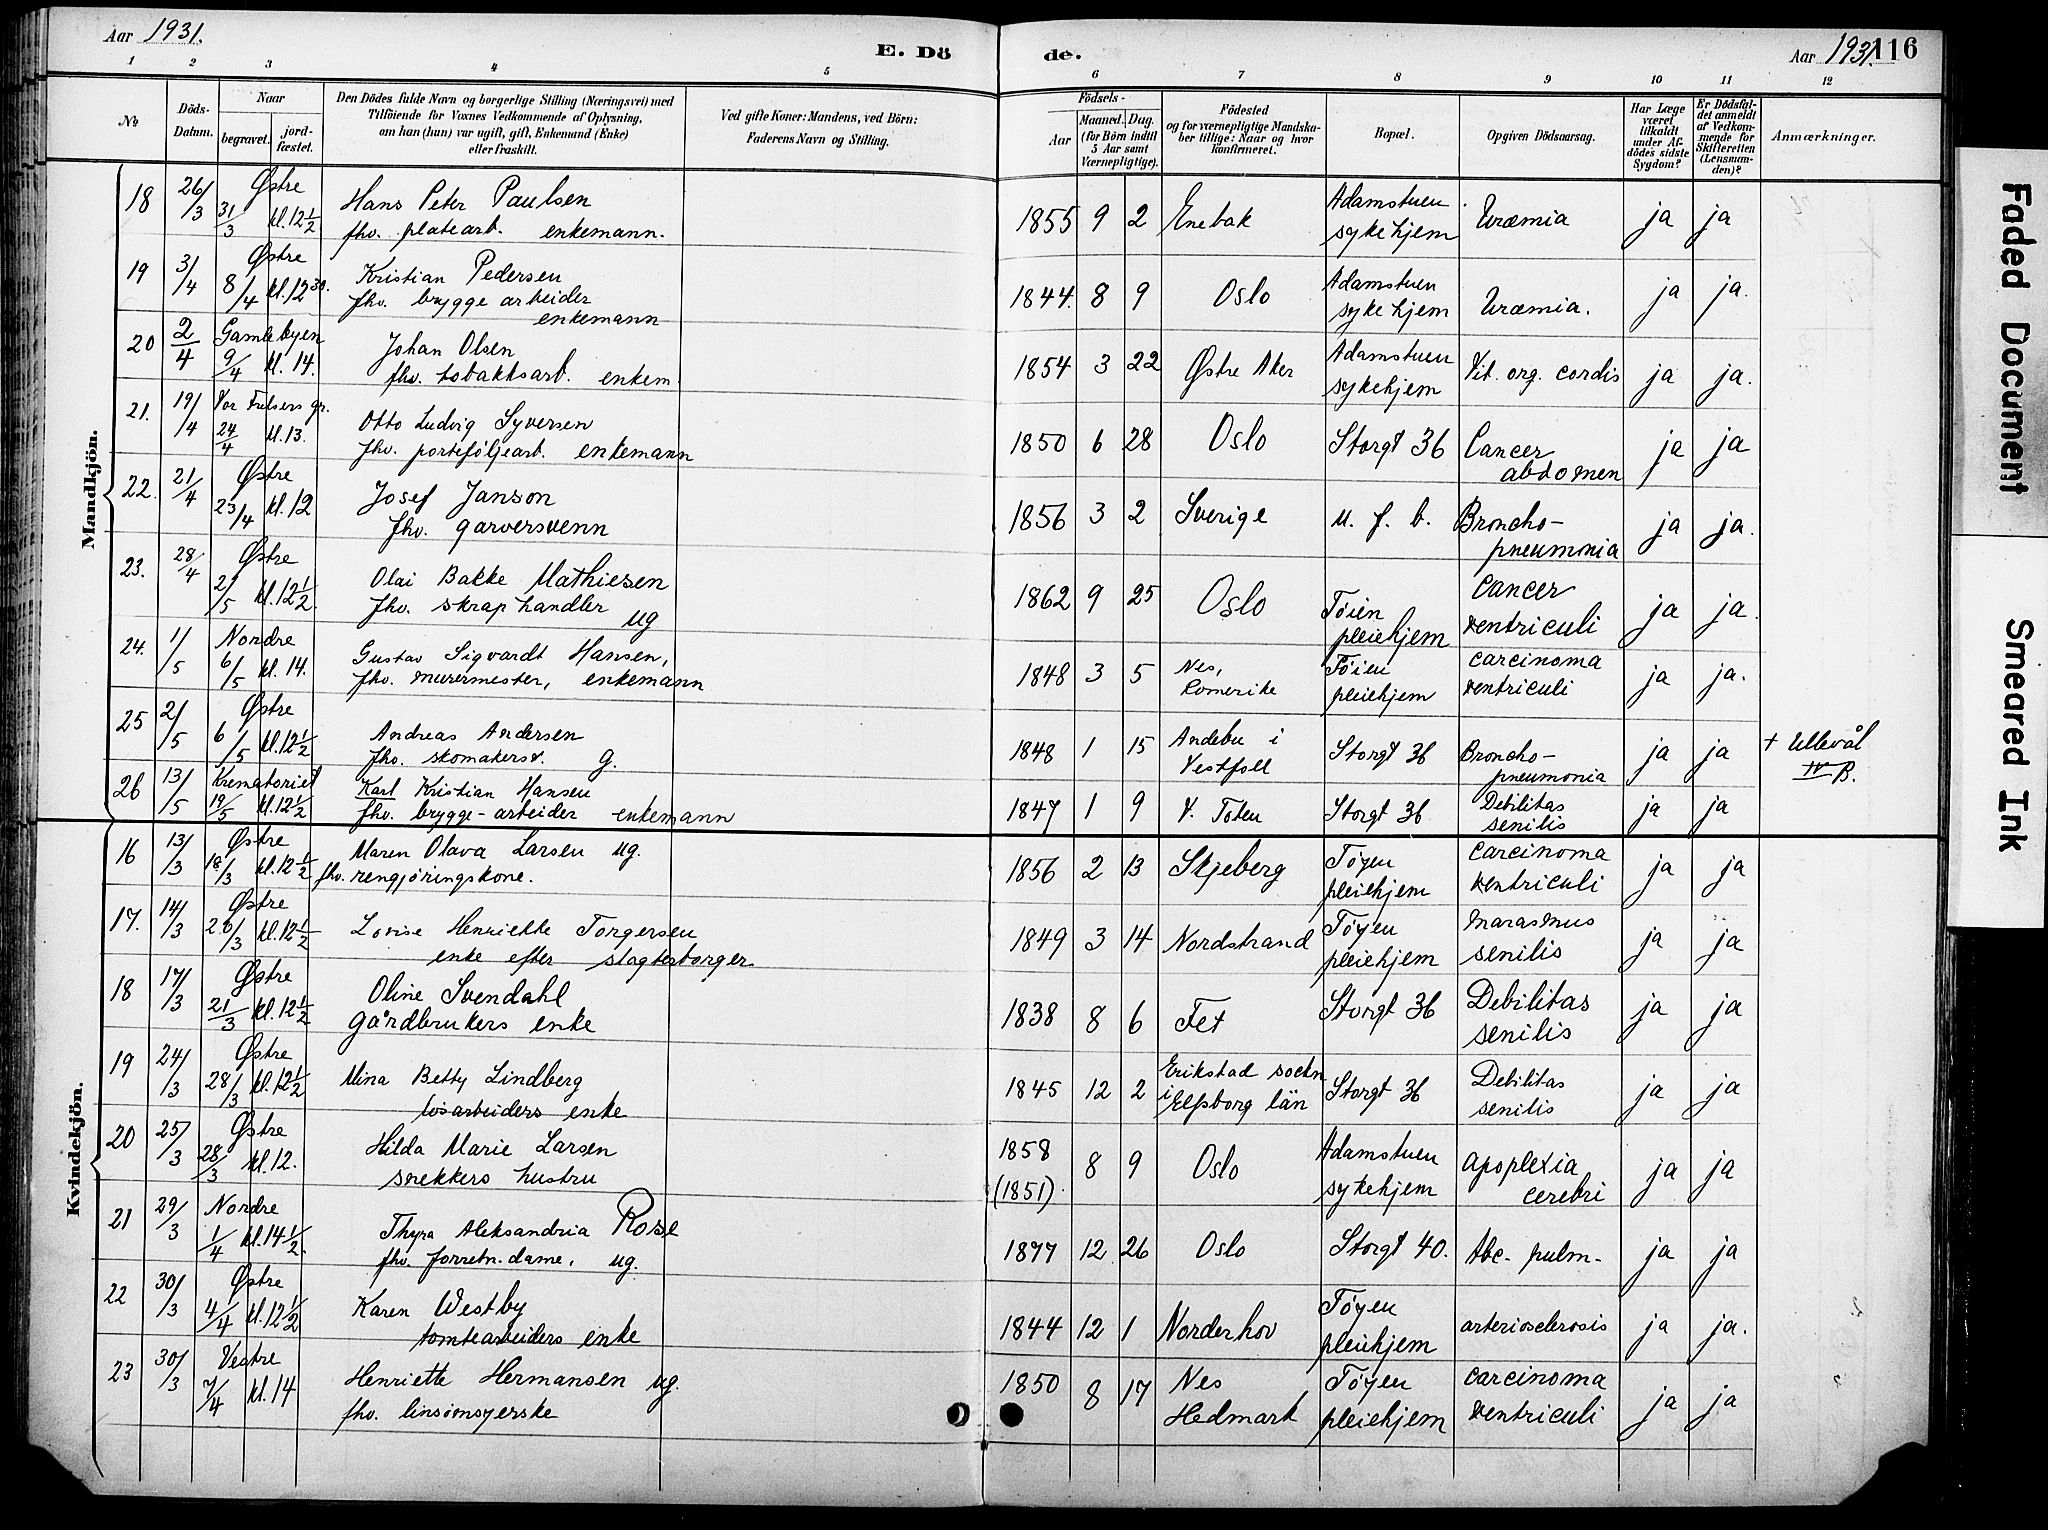 Aar 1931.
E. Dö
de.
Aar 1931.
116
1 2 3 4 5 6 7 8 9 10 11 12
No
Döds-Datum.
Naar
begravet.
jord-fæstet.
Den Dödes fulde Navn og borgerlige Stilling (Næringsvei) med
Tilföiende for Voxnes Vedkommende af Oplysning,
om han (hun) var ugift, gift, Enkemand (Enke)
eller fraskilt.
Ved gifte Koner: Mandens, ved Börn:
Faderens Navn og Stilling.
Födsels-
Aar
Maaned. Dag.
(for Börn indtil
5 Aar samt
Værnepligtige).
Födested
og for værnepligtige Mandska-
ber tillige: Naar og hvor
konfirmeret.
Bopæl.
Opgiven Dödsaarsag.
Har Læge
været
tilkaldt
under Af-
dödes sidste
Sygdom?
Er Dödsfal-
det anmeldt
af Vedkom-
mende for
Skifteretten
(Lensman-
den)?
Anmærkninger.
Mandkjön.
18 26/3 Østre 31/3 kl. 12 1/2 Hans Peter Paulsen
fhv. platearb. enkemann.
1855 9 2 Enebak Adamstuen sykehjem Uræmia ja ja
19 3/4 Østre 8/4 kl. 12 30. Kristian Pedersen
fhv. bryggearbeider
enkemann
1844. 8 9 Oslo Adamstuen sykehjem Uræmia. ja ja.
20 2/4 Gamlebyen 9/4 kl. 14. Johan Olsen
fhv. tobakksarb. enkem.
1854 3 22 Østre Aker Adamstuen sykehjem Vit. org. cordis ja ja.
21. 19/4 Vor Frelsers gr. 24/4 kl. 13. Otto Ludvig Syversen
fhv. porteføljearb. enkemann
1850 6 28 Oslo Storgt 36 Cancer abdomen ja ja
22. 21/4 Østre 23/4 kl. 12 Josef Janson
fhv. garversvenn
1856 3 2 Sverige u. f. b. Broncho-pneumonia ja ja.
23. 28/4 Østre 2/5 kl. 12 1/2. Olai Bakke Mathiesen
fhv. skraphandler ug
1862 9 25 Oslo Tøien pleiehjem Cancer ventriculi ja ja.
24. 1/5 Nordre 6/5 kl. 14. Gustav Sigvardt Hansen,
fhv. murermester, enkemann
1848 3 5 Nes, Romerike Tøien pleiehjem carcinoma ventriculi ja ja.
25 2/5 Østre 6/5 kl. 12 1/2 Andreas Andersen
fhv. skomakersv. g.
1848 1 15 Andebu i Vestfold Storgt 36 Broncho-pneumonia ja ja + Ullevål
IV B.
26 13/5 Krematoriet 19/5 kl. 12 1/2 Karl Kristian Hansen
fhv. brygge-arbeider enkemann
1847 1 9 V. Toten Storgt 36 Debilitas senilis ja ja
Kvindekjön.
16 13/3 Østre 18/3 kl. 12 1/2 Maren Olava Larsen ug.
fhv. rengjøringskone.
1856 2 13 Skjeberg Tøyen pleiehjem carcinoma ventriculi ja ja
17. 14/3 Østre 20/3 kl. 12 1/2 Lovise Henriette Torgersen
enke efter slagterborger
1849 3 14 Nordstrand Tøyen pleiehjem Marasmus senilis ja ja
18 17/3 Østre 21/3 kl. 12 1/2 Oline Svendahl
gårdbrukers enke
1838 8 6 Fet Storgt 36 Debilitas senilis ja ja
19 24/3 Østre 28/3 kl. 12 1/2 Mina Betty Lindberg
løsarbeiders enke
1845 12 2 Erikstad sockn i Elfsborg län Storgt 36 Debilitas senilis ja ja
20 25/3 Østre 28/3 kl. 12. Hilda Marie Larsen
snekkers hustru
1858 (1851). 8 9 Oslo Adamstuen sykehjem apoplexia cerebri ja ja
21 29/3 Nordre 1/4 kl. 14 1/2. Thyra Aleksandria Rose
fhv. forretn. dame, ug.
1877 12 26 Oslo Storgt 40. tbc. pulm. ja ja
22 30/3 Østre 4/4 kl. 12 1/2 Karen Westby
tomtearbeiders enke
1844 12 1 Norderhov Tøyen pleiehjem arteriosclerosis ja ja.
23 30/3 Vestre 7/4 kl. 14 Henriette Hermansen ug.
fhv. linsømsyerske
1850 8 17 Nes Hedmark Tøyen pleiehjem carcinoma ventriculi ja ja
Faded Document
Smeared Ink